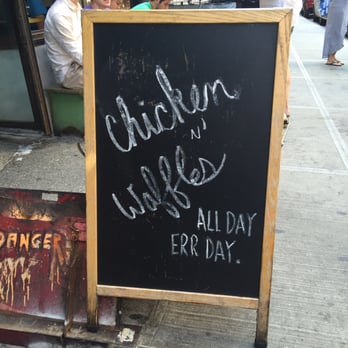 chicken
N'
Waffles
ALL DAY
ERR DAY.
DANGER